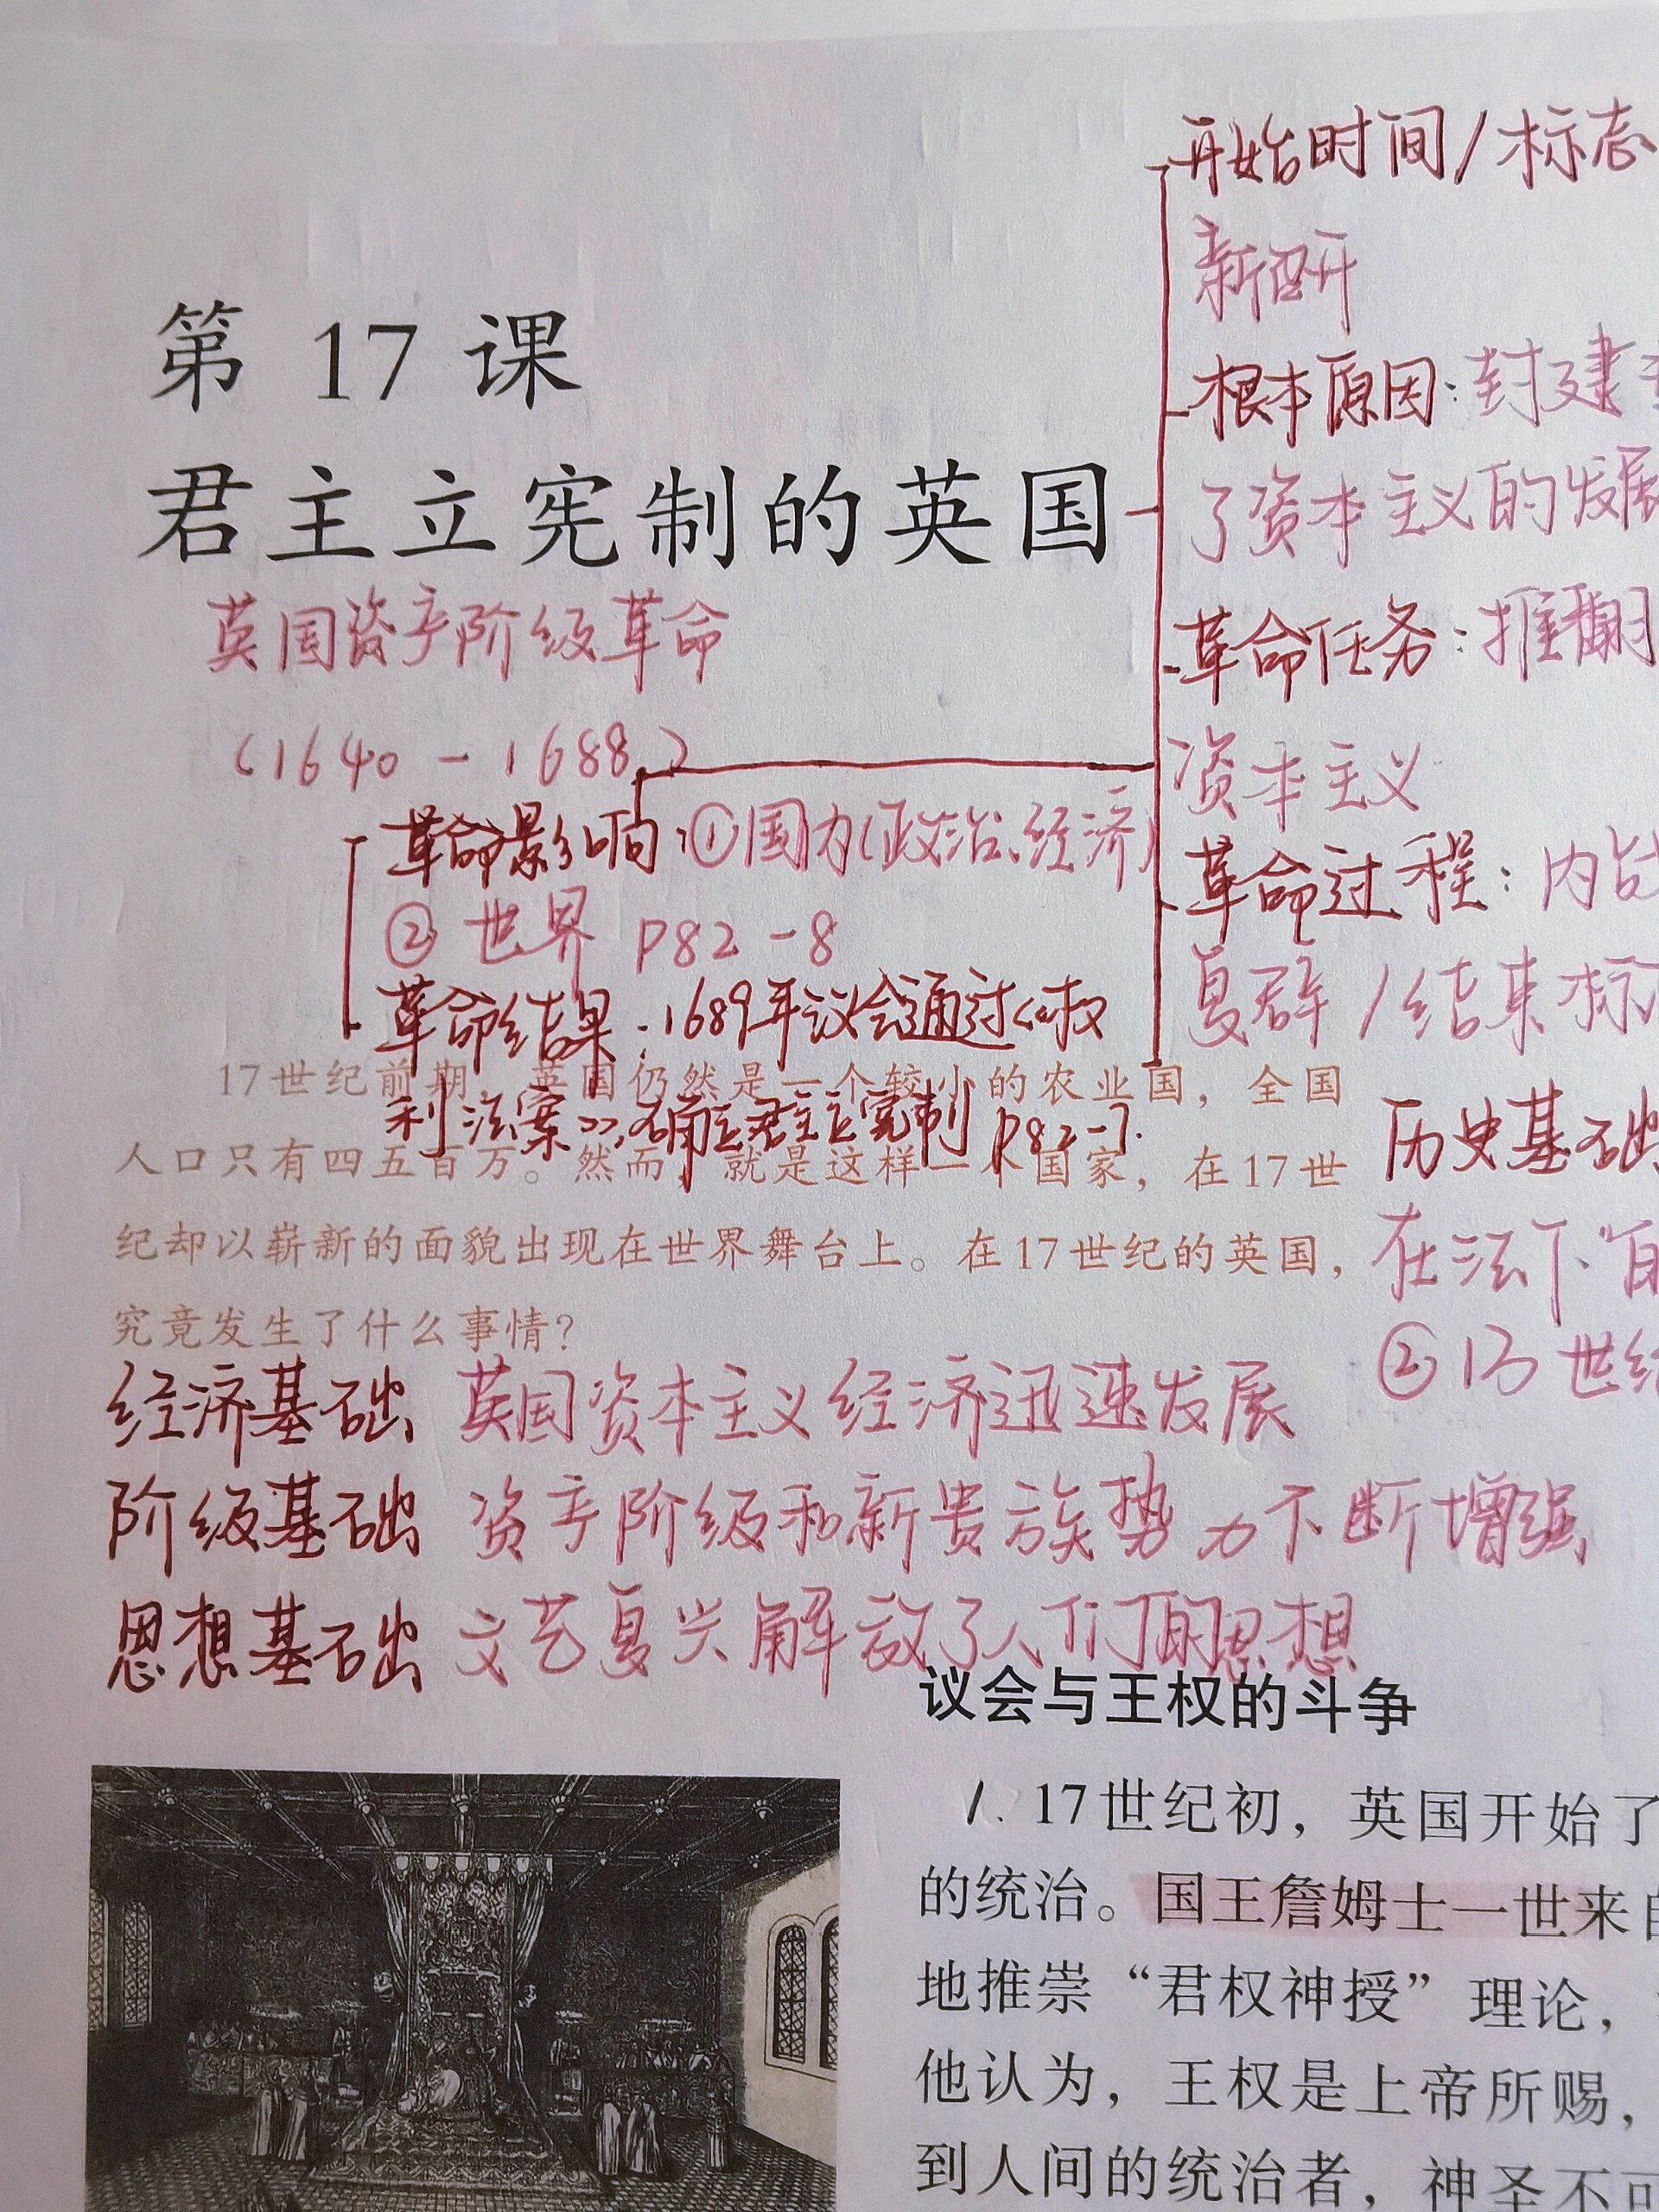 开始时间/标志
新召开
第 17 课
根本原因:封建
君主立宪制的英国
了资本主义的发展
英国资产阶级革命
革命任务:推翻
(1640-1688)
资本主义
革命影响:①国内(政治、经济)
革命过程:内战
②世界 P82-8
复辟/结束标
革命结果:1689年议会通过《权
利法案》,确立君主立宪制 P82-7.
17世纪前期,英国仍然是一个较小的农业国,全国
人口只有四五百万。然而,就是这样一个国家,在17世
纪却以崭新的面貌出现在世界舞台上。在17世纪的英国,
究竟发生了什么事情?
历史基础
在法下"自
②13世纪
经济基础 英国资本主义经济迅速发展
阶级基础 资产阶级和新贵族势力不断增强
思想基础 文艺复兴解放了人们的思想
议会与王权的斗争
1. 17世纪初,英国开始了
的统治。国王詹姆士一世来自
地推崇“君权神授”理论,
他认为,王权是上帝所赐,
到人间的统治者,神圣不可